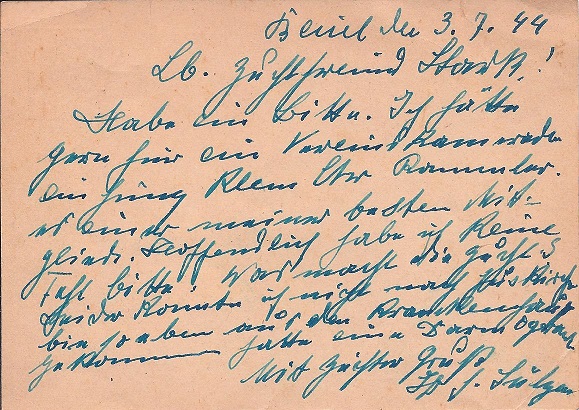 Beuel den 3.7.44
Lb. Zuchtfreund Stark!
Habe ein Bitte. Ich hätte
gern für ein Vereinskameraden
ein jung Klein Rammler.
es einer meiner besten Mit-
glieder. Hoffendlich habe ich keine
Fehl bitte! Was macht die Zucht?
Leider konnte ich nicht nach
bin soeben aus den Krankenhaus
gekommen hatte eine Darm
Mit Züchter Gruß